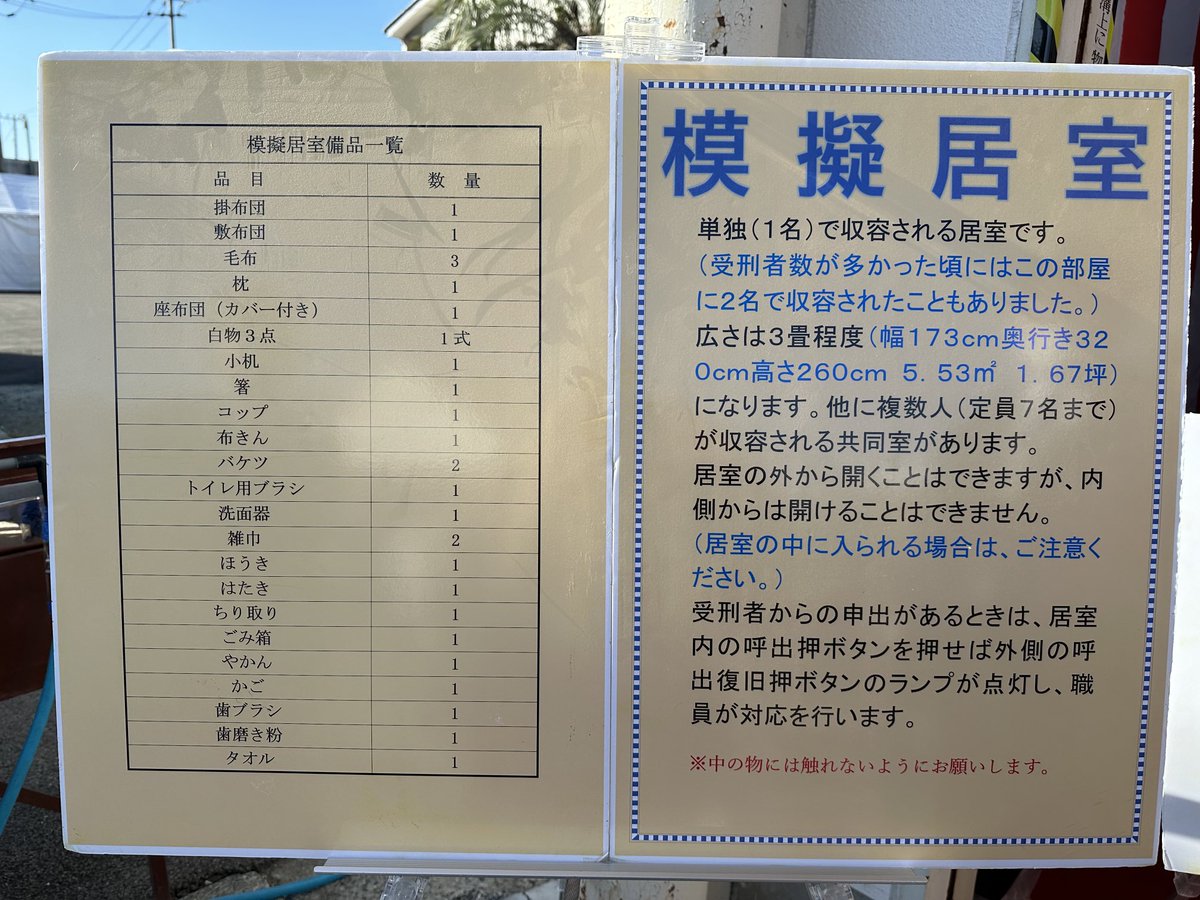 模擬居室備品一覧
品 目 数 量
掛布団 1
敷布団 1
毛布 3
枕 1
座布団（カバー付き） 1
白物３点 1式
小机 1
箸 1
コップ 1
布きん 1
バケツ 2
トイレ用ブラシ 1
洗面器 1
雑巾 2
ほうき 1
はたき 1
ちり取り 1
ごみ箱 1
やかん 1
かご 1
歯ブラシ 1
歯磨き粉 1
タオル 1
模擬居室
単独（１名）で収容される居室です。
（受刑者数が多かった頃にはこの部屋
に２名で収容されたこともありました。）
広さは３畳程度（幅１７３ｃｍ奥行き３２
０ｃｍ高さ２６０ｃｍ ５．５３㎡ １．６７坪）
になります。他に複数人（定員７名まで）
が収容される共同室があります。
居室の外から開くことはできますが、内
側からは開けることはできません。
（居室の中に入られる場合は、ご注意く
ださい。）
受刑者からの申出があるときは、居室
内の呼出押ボタンを押せば外側の呼
出復旧押ボタンのランプが点灯し、職
員が対応を行います。
※中の物には触れないようにお願いします。
溝上に物